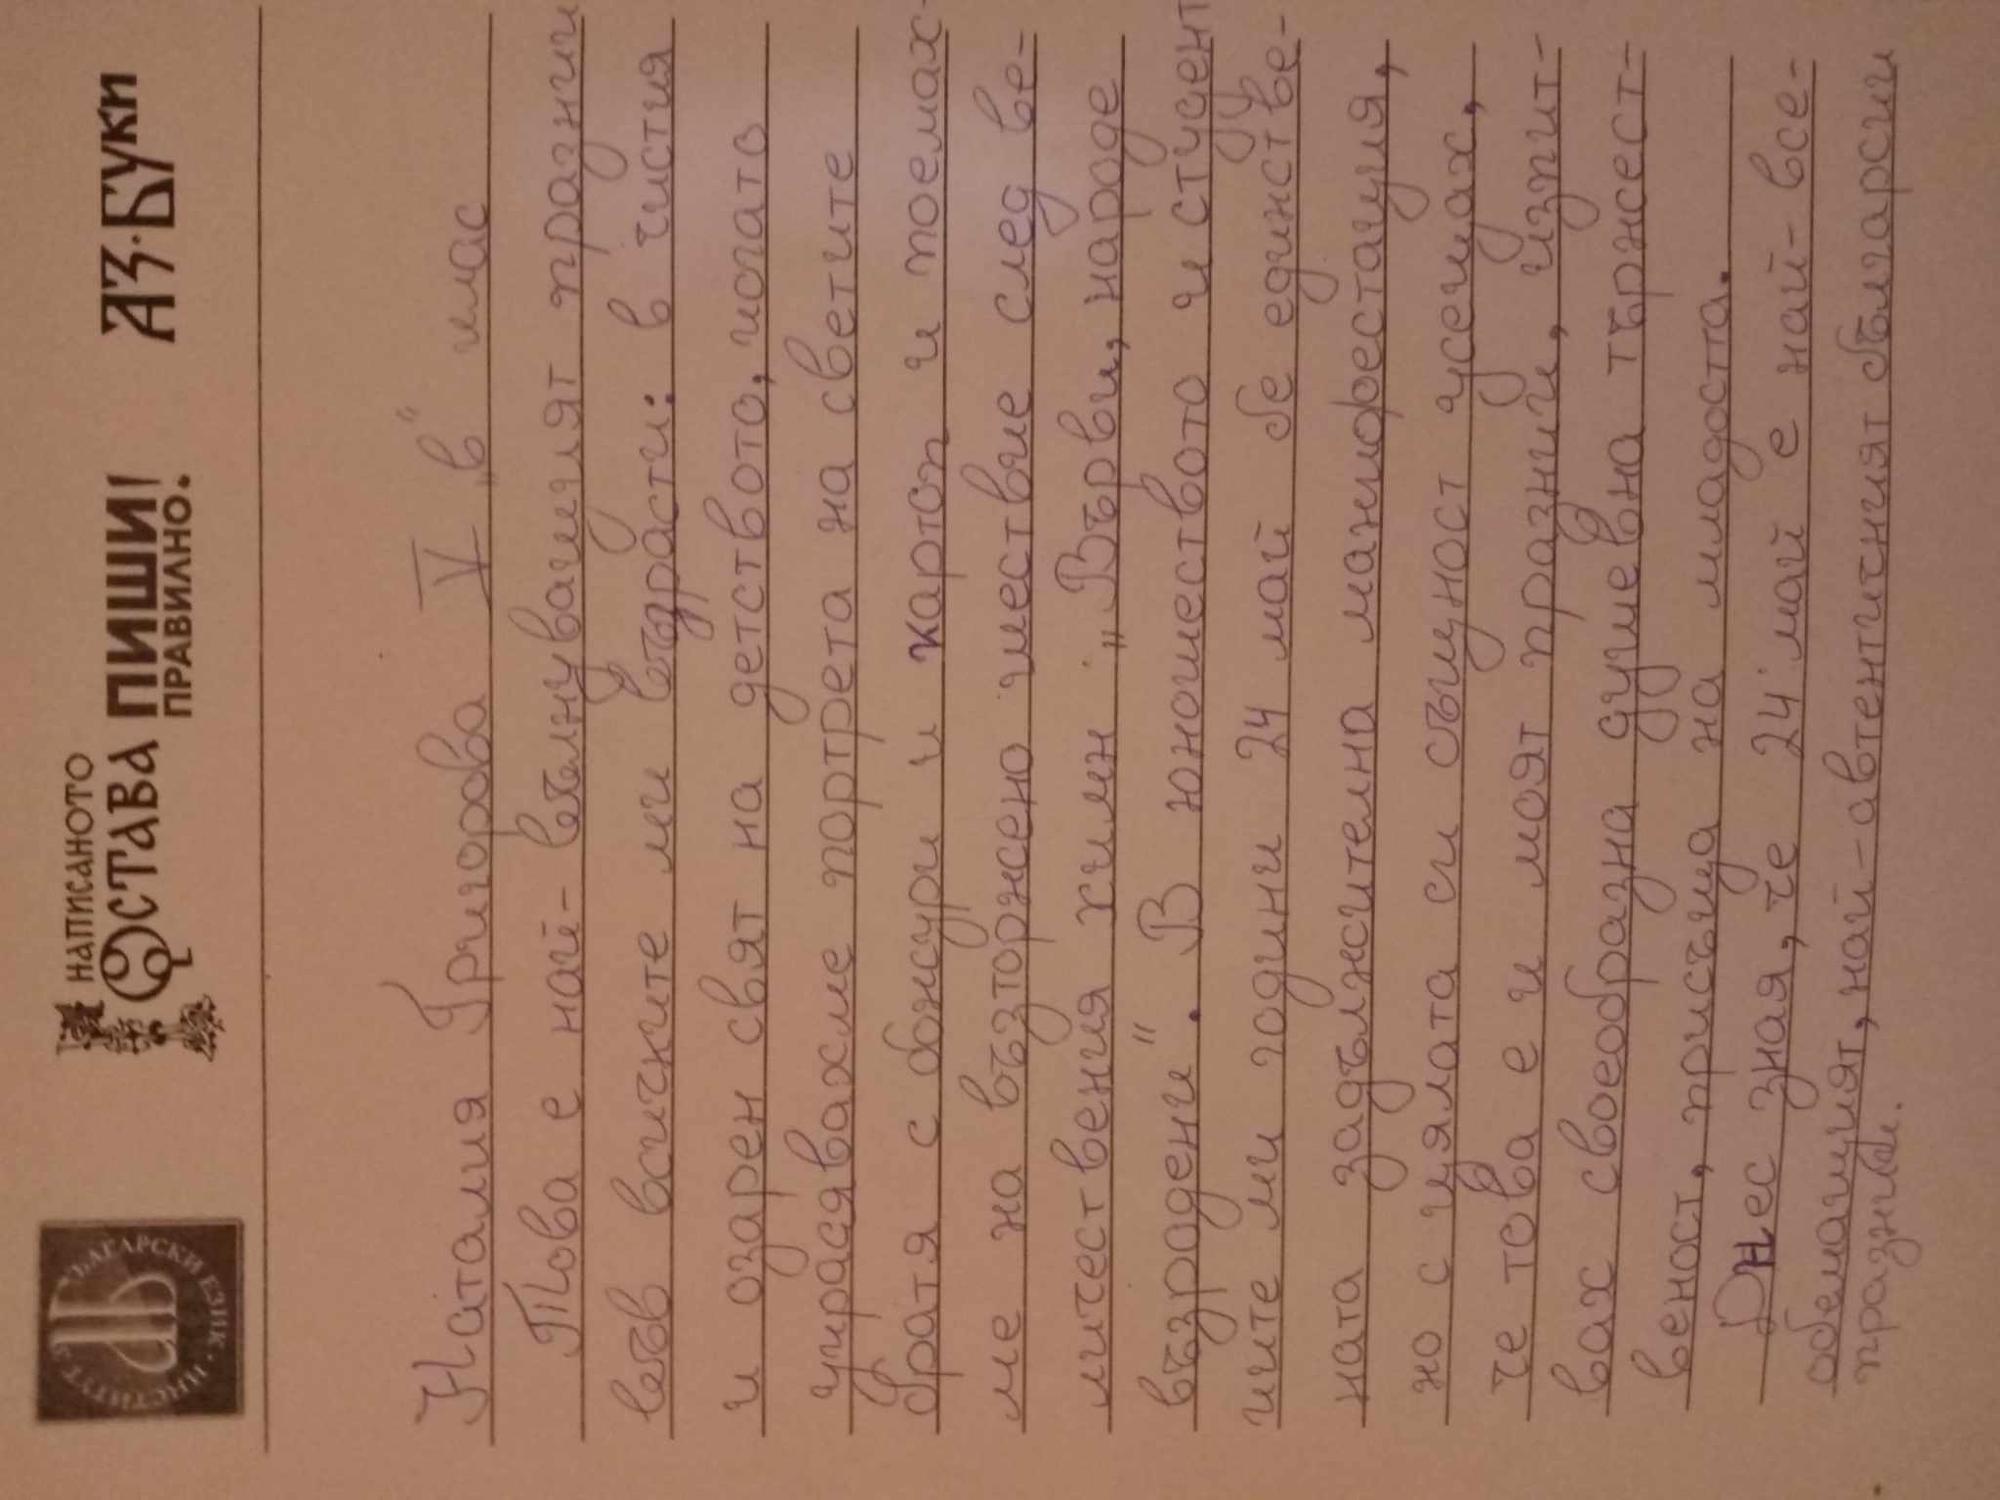 ИНСТИТУТ ЗА БЪЛГАРСКИ ЕЗИК
НАПИСАНОТО
ОСТАВА ПИШИ!
ПРАВИЛНО.
АЗ·БУКИ
Наталия Григорова V „в“ клас
Това е най- вълнуващият празник
във всичките ми възрасти: в чистия
и озарен свят на детството, когато
украсявахме портрета на светите
братя с божури и картон и поемах-
ме на възторжено шествие след ве-
личествения химн „Върви, народе
възродени“. В юношеството и студент
ките ми години 24 май бе единстве-
ната задължителна манифестация,
но с цялата си същност усещах,
че това е и моят празник, изпит-
вах своеобразна душевна тържест-
веност, присъща на младостта.
Днес зная, че 24 май е най- все-
обемащият, най-автентичният български
празник.